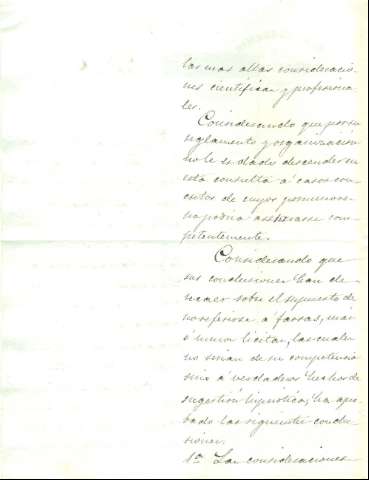 las mas altas consideracio-
nes científicas y profesiona-
les.
Considerando que por su
reglamento y organización
no le es dado descender en
esta consulta á casos con-
cretos de cuyos pormenores
no podría ocuparse com-
petentemente.
Considerando que
sus conclusiones han de
recaer sobre el supuesto de
no referirse á farsas, más
ó menos lícitas, las cuales
no serían de su competencia
sino á verdaderos hechos de
sugestión hipnótica, ha apro-
bado las siguientes conclu-
siones.
1ª Las consideraciones